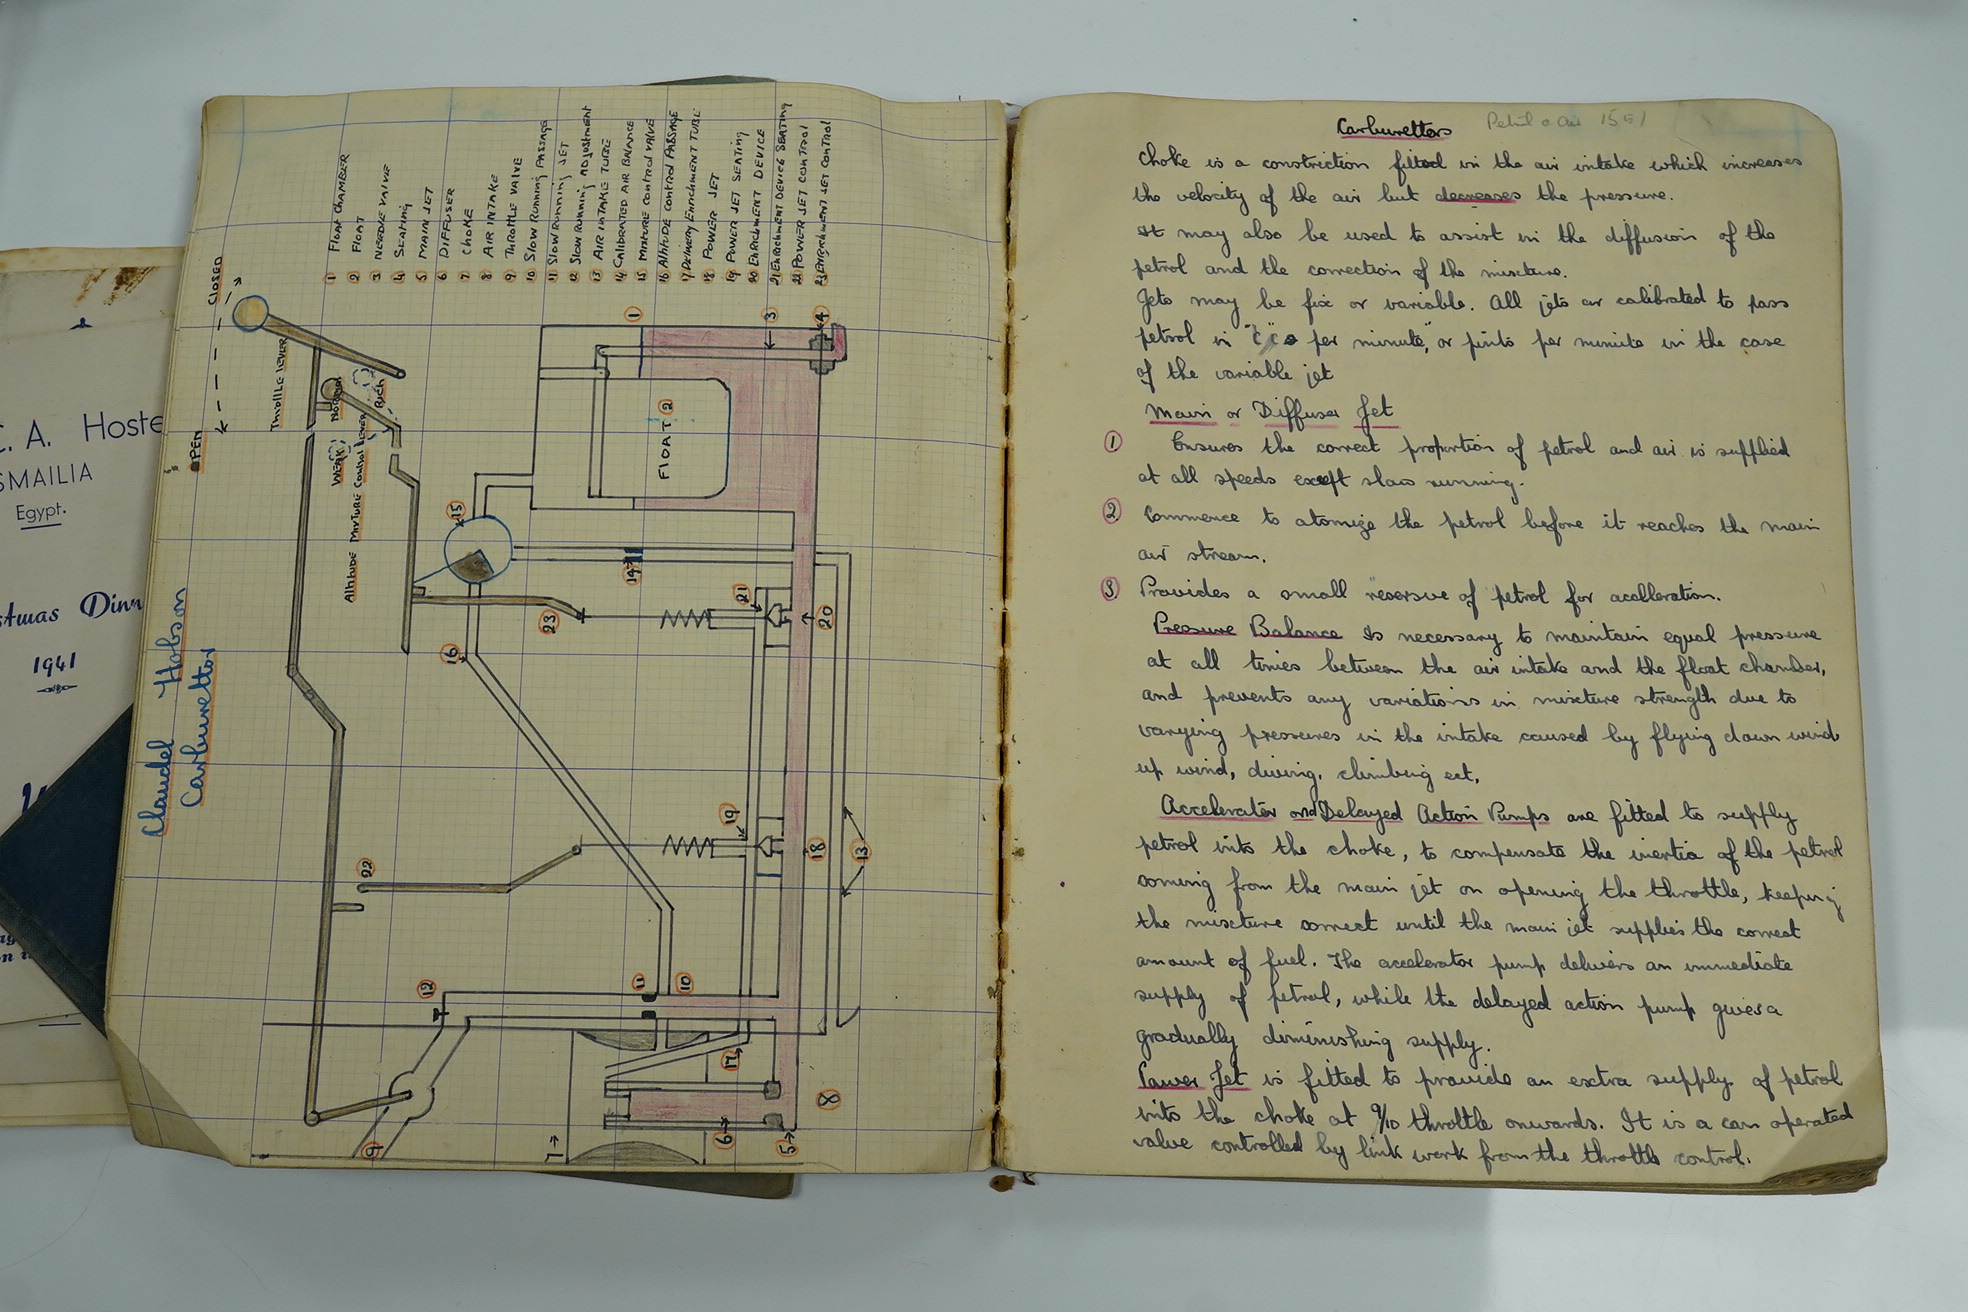 C. A. Hoste
SMAILIA
Egypt.
stmas Dinn
1941
Claudel Hobson
Carburettor
OPEN
CLOSED
Throttle lever
WEAK
NORMAL
RICH
Altitude Mixture Control lever
1 FLOAT CHAMBER
2 FLOAT
3 NEEDLE VALVE
4 SEATING
5 MAIN JET
6 DIFFUSER
7 CHOKE
8 AIR INTAKE
9 THROTTLE VALVE
10 SLOW RUNNING PASSAGE
11 SLOW RUNNING JET
12 SLOW RUNNING ADJUSTMENT
13 AIR INTAKE TUBE
14 CALIBRATED AIR BALANCE
15 MIXTURE CONTROL VALVE
16 Altitude CONTROL PASSAGE
17 Delivery Enrichment TUBE
18 POWER JET
19 POWER JET SEATING
20 ENRICHMENT DEVICE
21 ENRICHMENT DEVICE SEATING
22 POWER JET CONTROL
23 ENRICHMENT JET CONTROL
1
3
4
FLOAT 2
15
14
21
20
23
16
19
18
13
22
12
11
10
17
8
6
5
7
9
Carburettors Petrol & Air 15:1
Choke is a constriction fitted in the air intake which increases
the velocity of the air but decreases the pressure.
It may also be used to assist in the diffusion of the
petrol and the correction of the mixture.
Jets may be fix or variable. All jets ar calibrated to pass
petrol in "c c s per minute", or pints per minute in the case
of the variable jet
Main or Diffuser Jet
1 Ensures the correct proportion of petrol and air is supplied
at all speeds except slow running.
2 Commence to atomize the petrol before it reaches the main
air stream.
3 Provides a small reserve of petrol for acelleration.
Pressure Balance Is necessary to maintain equal pressure
at all times between the air intake and the float chamber,
and prevents any variations in mixture strength due to
varying pressures in the intake caused by flying down wind
up wind, diving, climbing ect,
Accelerator and Delayed Action Pumps are fitted to supply
petrol into the choke, to compensate the inertia of the petrol
coming from the main jet on opening the throttle, keeping
the mixture correct until the main jet supplies the correct
amount of fuel. The accelerator pump delivers an immediate
supply of petrol, while the delayed action pump gives a
gradually diminishing supply.
Power Jet is fitted to provide an extra supply of petrol
into the choke at 9/10 throttle onwards. It is a cam operated
valve controlled by link work from the throttle control.